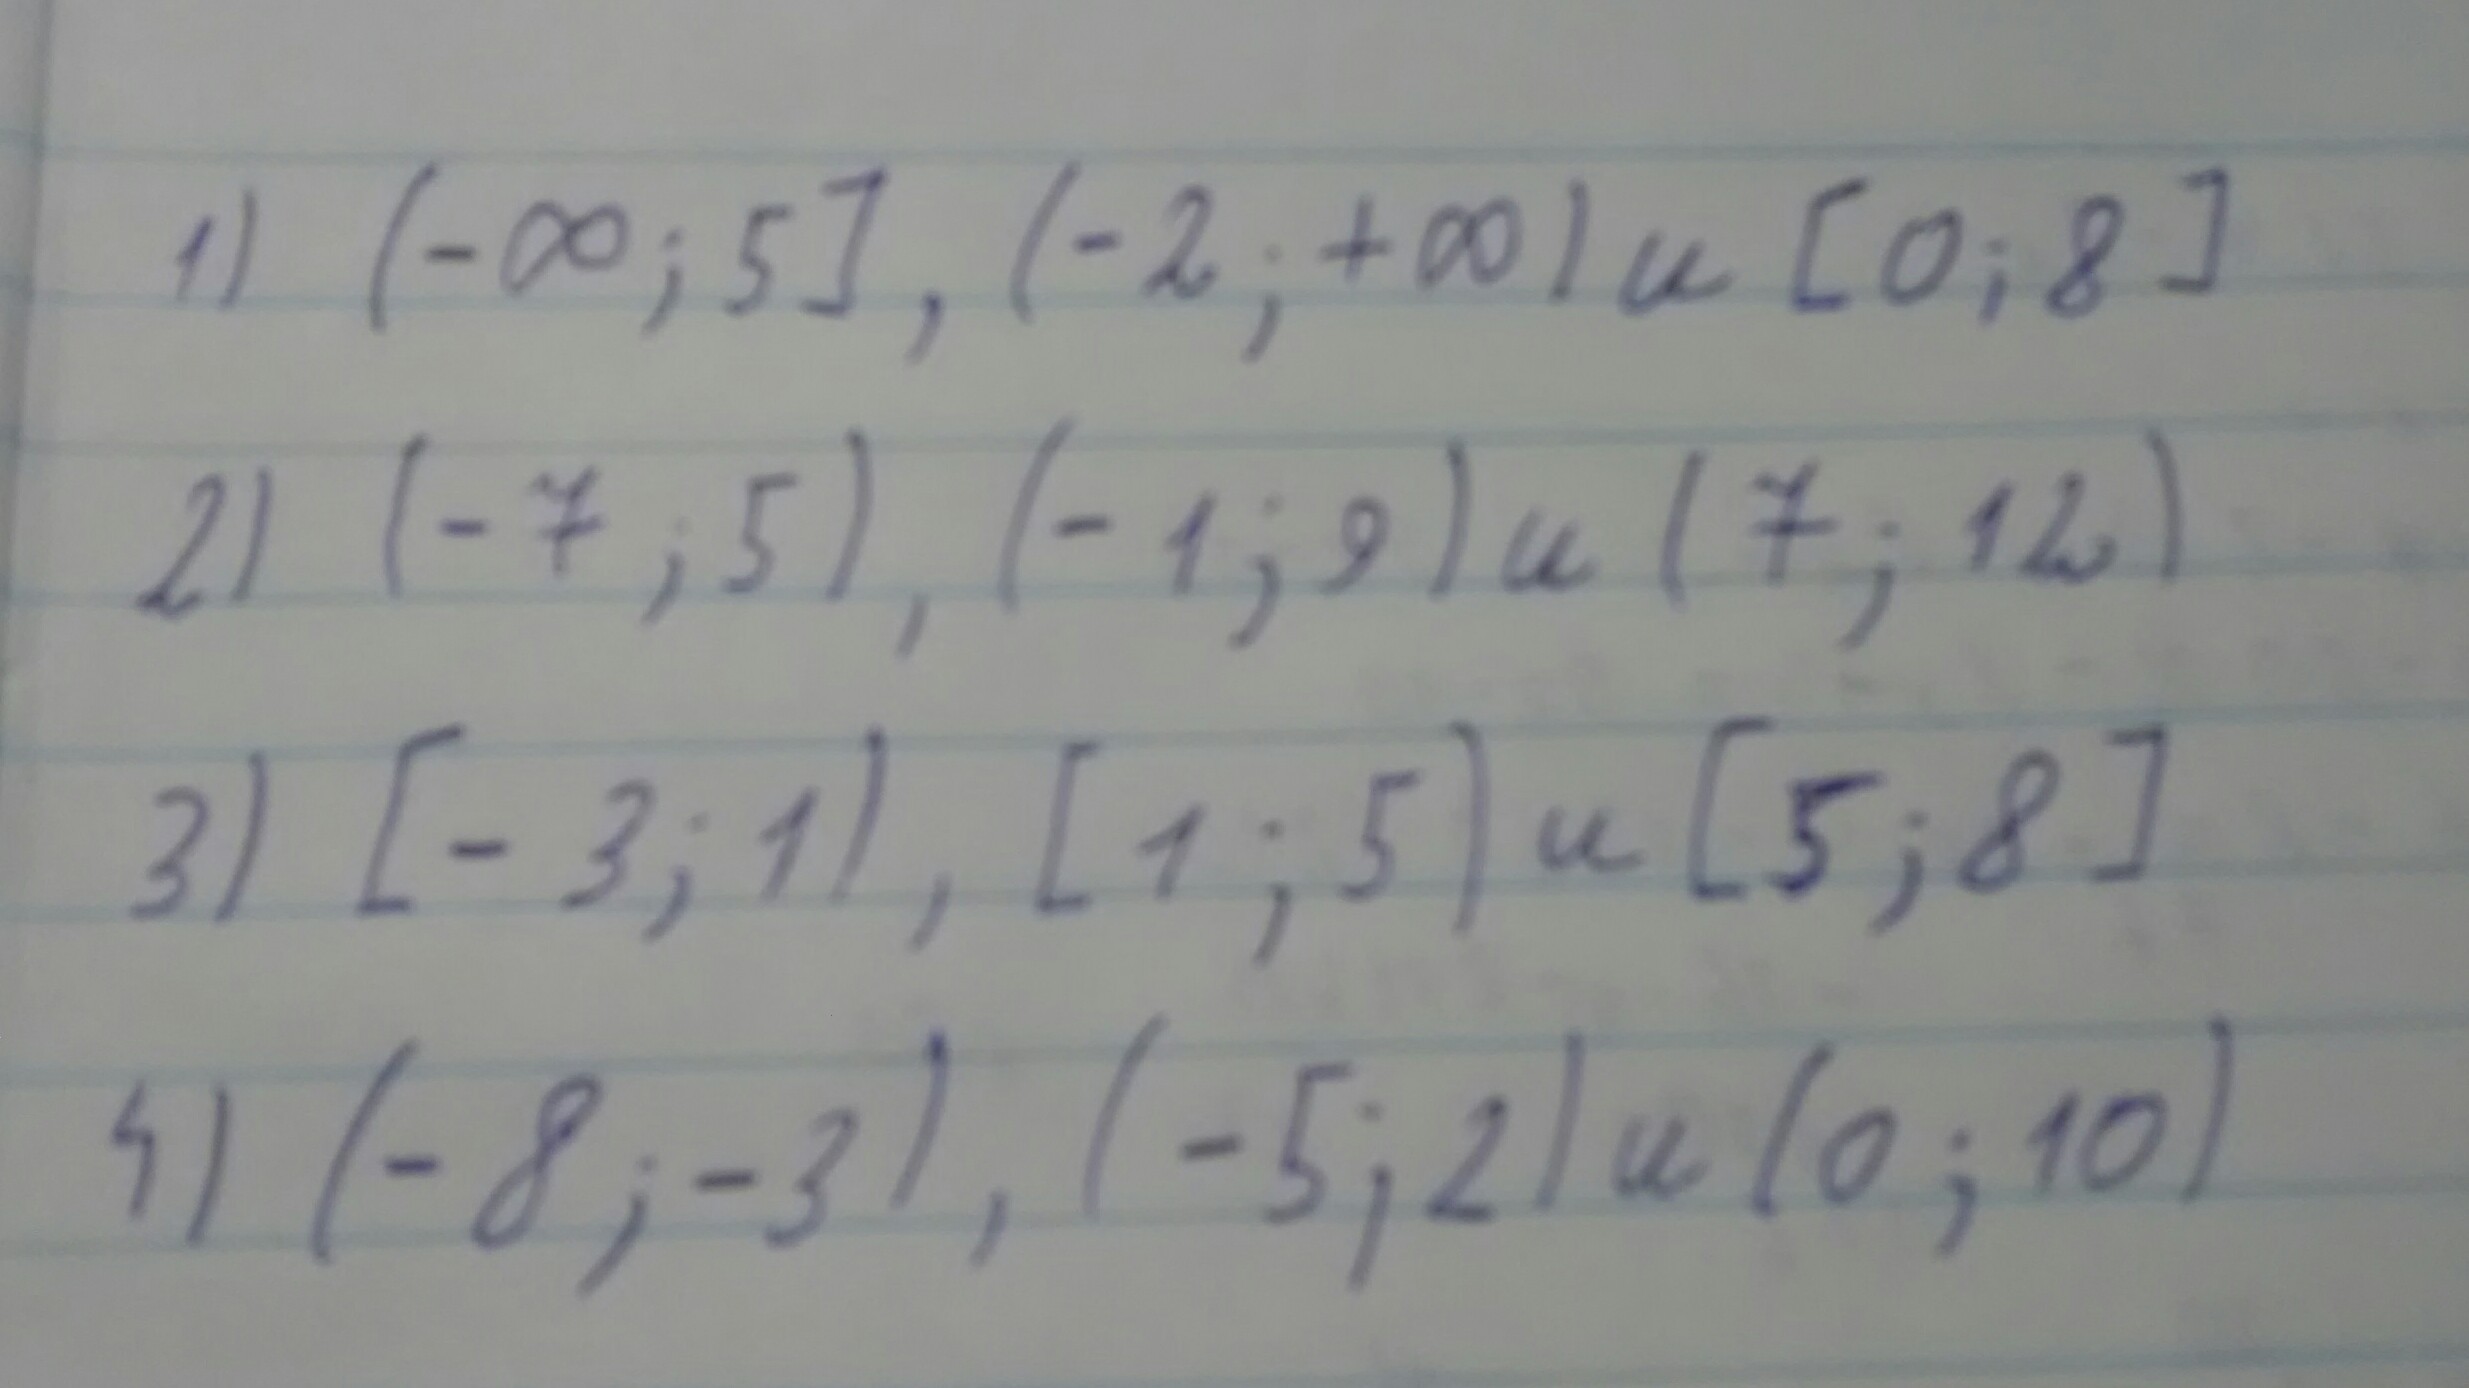 1) (-∞; 5], (-2; +∞) и [0; 8]
2) (-7; 5), (-1; 9) и (7; 12)
3) [-3; 1), [1; 5) и [5; 8]
4) (-8; -3), (-5; 2) и (0; 10)